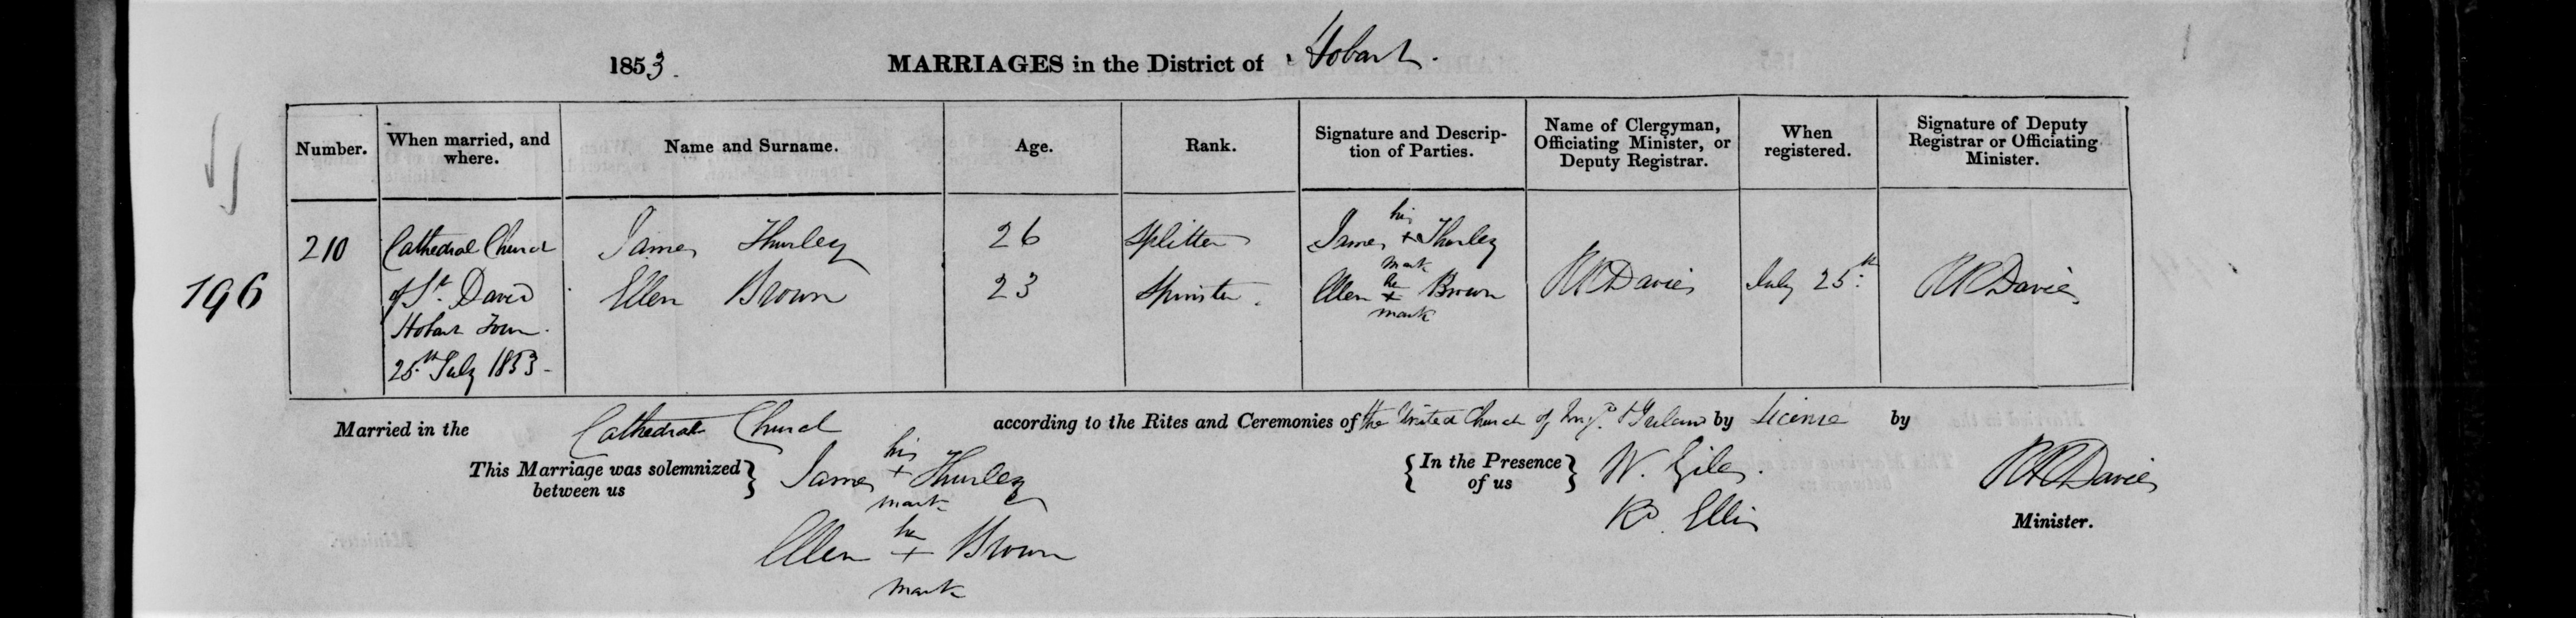 1853. MARRIAGES in the District of Hobart.
Number. When married, and where. Name and Surname. Age. Rank. Signature and Description of Parties. Name of Clergyman, Officiating Minister, or Deputy Registrar. When registered. Signature of Deputy Registrar or Officiating Minister.
196
210 Cathedral Church James Thurley 26 Splitter James his + mark Thurley
of St. David Ellen Brown 23 Spinster. Ellen her + mark Brown RRDavies July 25th. RRDavies
Hobart Town.
25th July 1853-
Married in the Cathedral Church according to the Rites and Ceremonies of the United Church of Engd. & Ireland by License by
This Marriage was solemnized between us } James his + mark Thurley { In the Presence of us } W. Giles. RRDavies
Ellen her + mark Brown Rd. Ellis Minister.